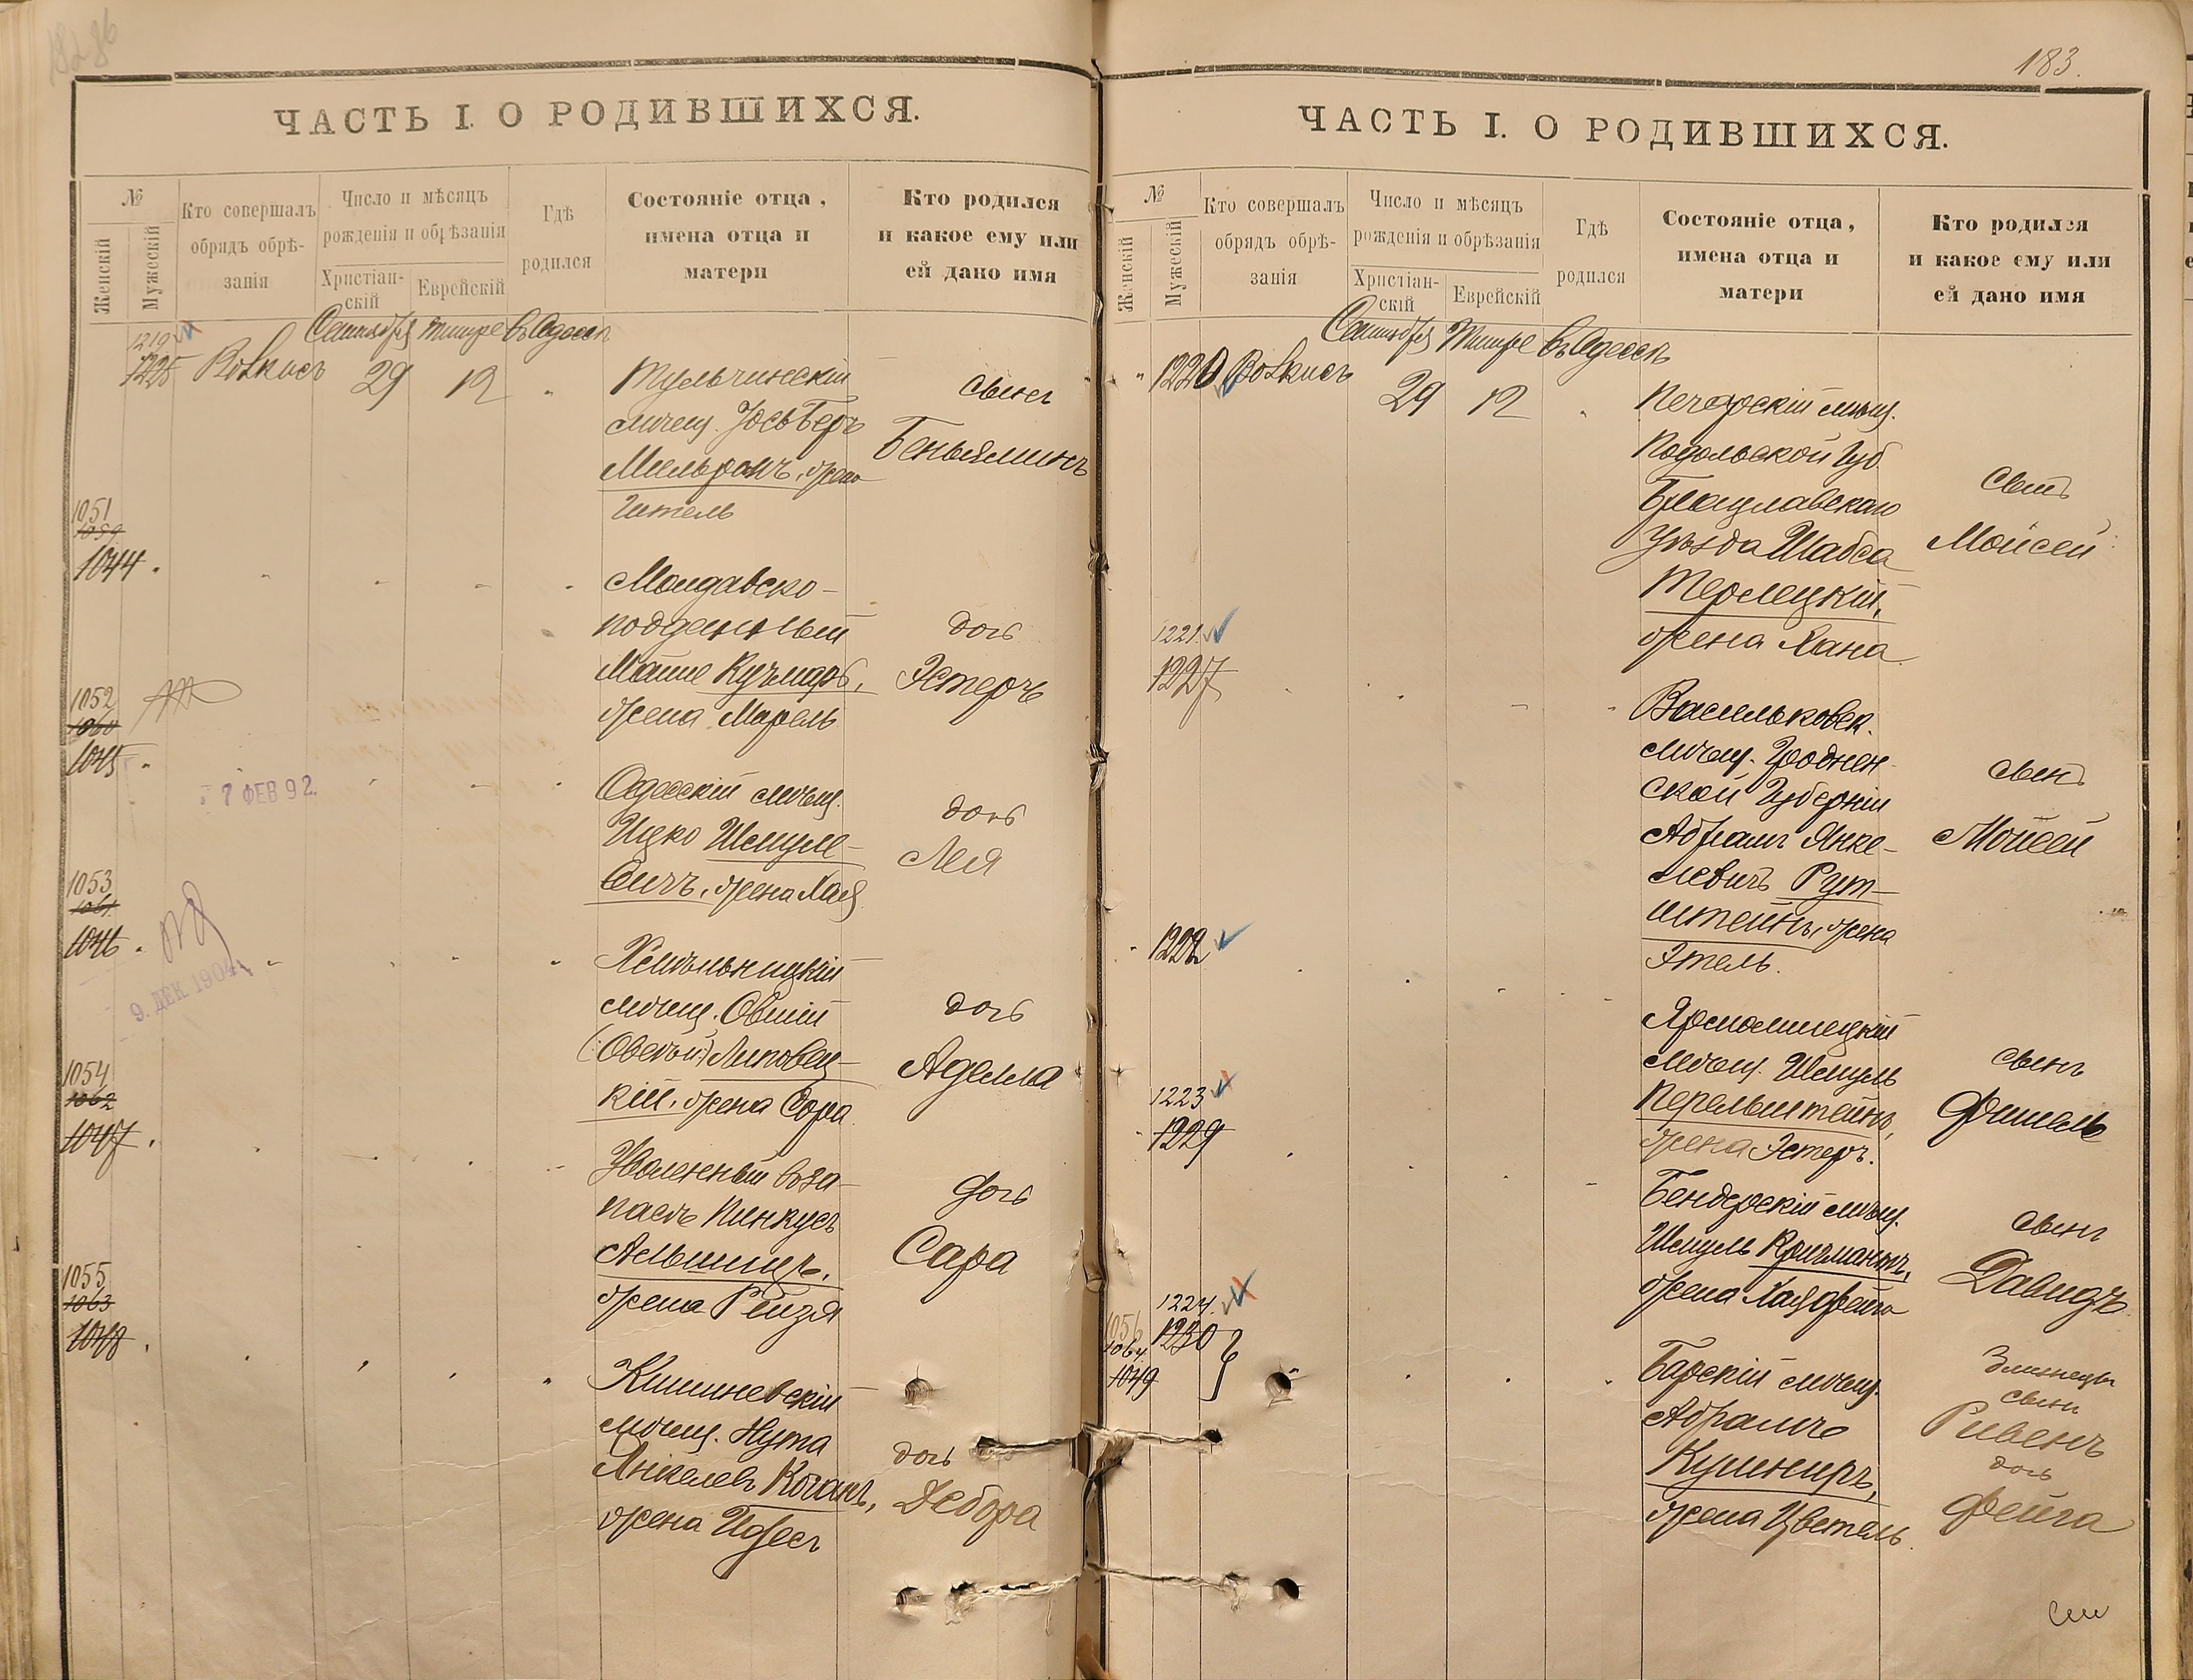 183.
ЧАСТЬ I. О РОДИВШИХСЯ.
№
Женскій
Мужескій
Кто совершалъ
обрядъ обрѣ-
занія
Число и мѣсяцъ
рожденія и обрѣзанія
Христіан-
скій
Еврейскій
Гдѣ
родился
Состояніе отца,
имена отца и
матери
Кто родился
и какое ему или
ей дано имя
Сентября Тишре въ Одессѣ
1219
1225
Волкисъ
29
12
Тульчинскій
мѣщ. Іось Беръ
Мильманъ, жена
Ителъ
сынъ
Беньяминъ
1051
1059
1044
Молдавско-
подданный
Маше Кучмаръ,
жена Маръль
дочь
Эстеръ
1052
1060
1045
7 ФЕВ 92.
Одесскій мѣщ.
Ицко Шмуле-
вичъ, жена Хая
дочь
Лея
1053
1061
1046
9. ДЕК 1904
Хмѣльницкій
мѣщ. Овшій
(Овсѣй) Липовец-
кій, жена Сора
дочь
Аделла
1054
1062
1047
Уволенный въ за-
пасъ Пинкусъ
Альшицъ,
жена Рейзя
дочь
Сара
1055
1063
1048
Кишиневскій
мѣщ. Нута
Янкелевъ Коганъ,
жена Идесъ
дочь
Дебора
ЧАСТЬ I. О РОДИВШИХСЯ.
№
Женскій
Мужескій
Кто совершалъ
обрядъ обрѣ-
занія
Число и мѣсяцъ
рожденія и обрѣзанія
Христіан-
скій
Еврейскій
Гдѣ
родился
Состояніе отца,
имена отца и
матери
Кто родился
и какое ему или
ей дано имя
Сентября Тишре въ Одессѣ
1220
Волкисъ
29
12
Печерскій мѣщ.
Подольской Губ.
Брацлавскаго
Уѣзда Шабса
Терлецкій,
жена Хана
сынъ
Мойсей
1221
1227
Васильковск.
мѣщ. Гроднен-
ской Губерніи
Абрамъ Янке-
левичъ Рут-
штейнъ, жена
Этель.
сынъ
Мойсей
1222
Ярмолинецкій
мѣщ. Шмуль
Перельштейнъ,
жена Эстеръ.
сынъ
Фишель
1223
1229
Бендерскій мѣщ.
Шмуль Кричманъ,
жена Хая Фейга
сынъ
Давидъ
1224
1230
1056
1064
1049
Барскій мѣщ.
Абрамъ
Кушниръ,
жена Цветель.
Близнецы
сынъ
Рувенъ
дочь
Фейга